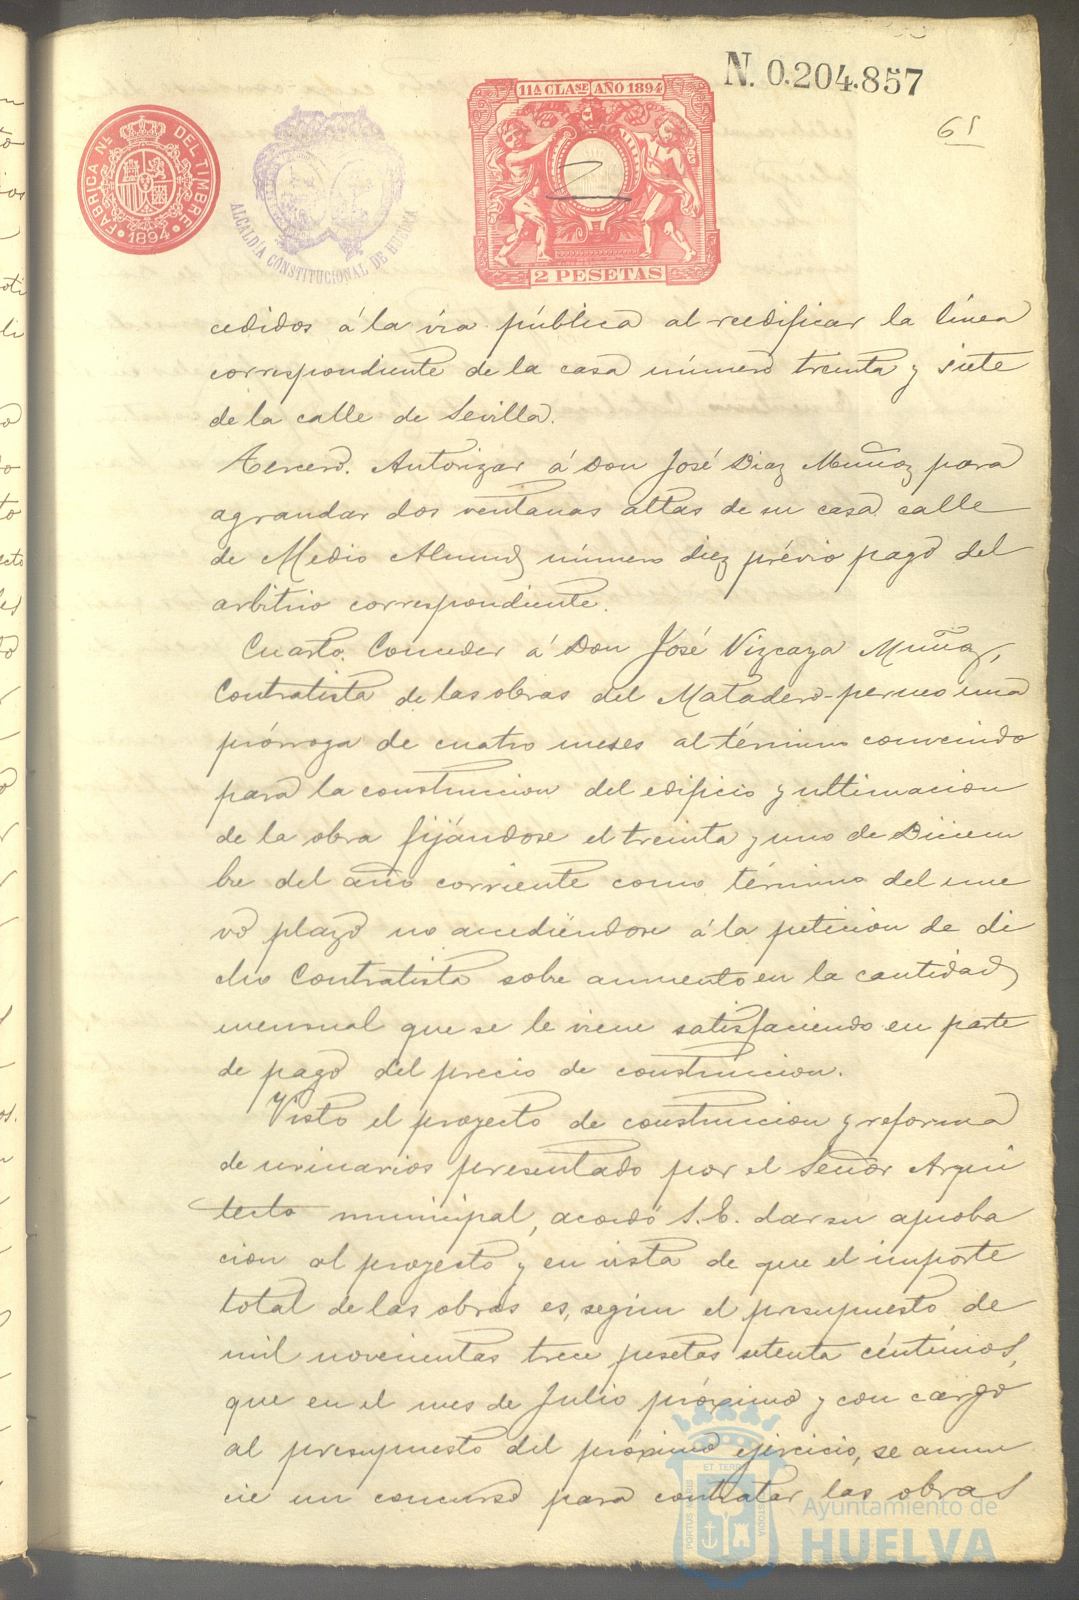 N. 0.204.857
61
11ª CLASE AÑO 1894
2 PESETAS
FABRICA NL. DEL TIMBRE
1894
ALCALDÍA CONSTITUCIONAL DE HUELVA
cedidos á la via pública al reedificar la línea
correspondiente de la casa número treinta y siete
de la calle de Sevilla.
Tercero. Autorizar á Don José Diaz Muñoz para
agrandar dos ventanas altas de su casa calle
de Medio Almud número diez prévio pago del
arbitrio correspondiente.
Cuarto. Conceder á Don José Vizcaya Muñoz,
Contratista de las obras del Matadero una
prórroga de cuatro meses al término convenido
para la construccion del edificio y ultimacion
de la obra fijándose el treinta y uno de Diciem
bre del año corriente como término del nue
vo plazo no accediéndose á la peticion de di
cho Contratista sobre aumento en la cantidad
mensual que se le viene satisfaciendo en parte
de pago del precio de construccion.
Visto el proyecto de construccion y reforma
de urinarios presentado por el Señor Arqui
tecto municipal, acordó S. E. dar su aproba
cion al proyecto y en vista de que el importe
total de las obras es, segun el presupuesto de
mil novecientas trece pesetas setenta céntimos,
que en el mes de Julio próximo y con cargo
al presupuesto del próximo ejercicio, se anun
cie un concurso para contratar las obras
PORTUS MARIS ET TERRAE CUSTODIA
Ayuntamiento de
HUELVA